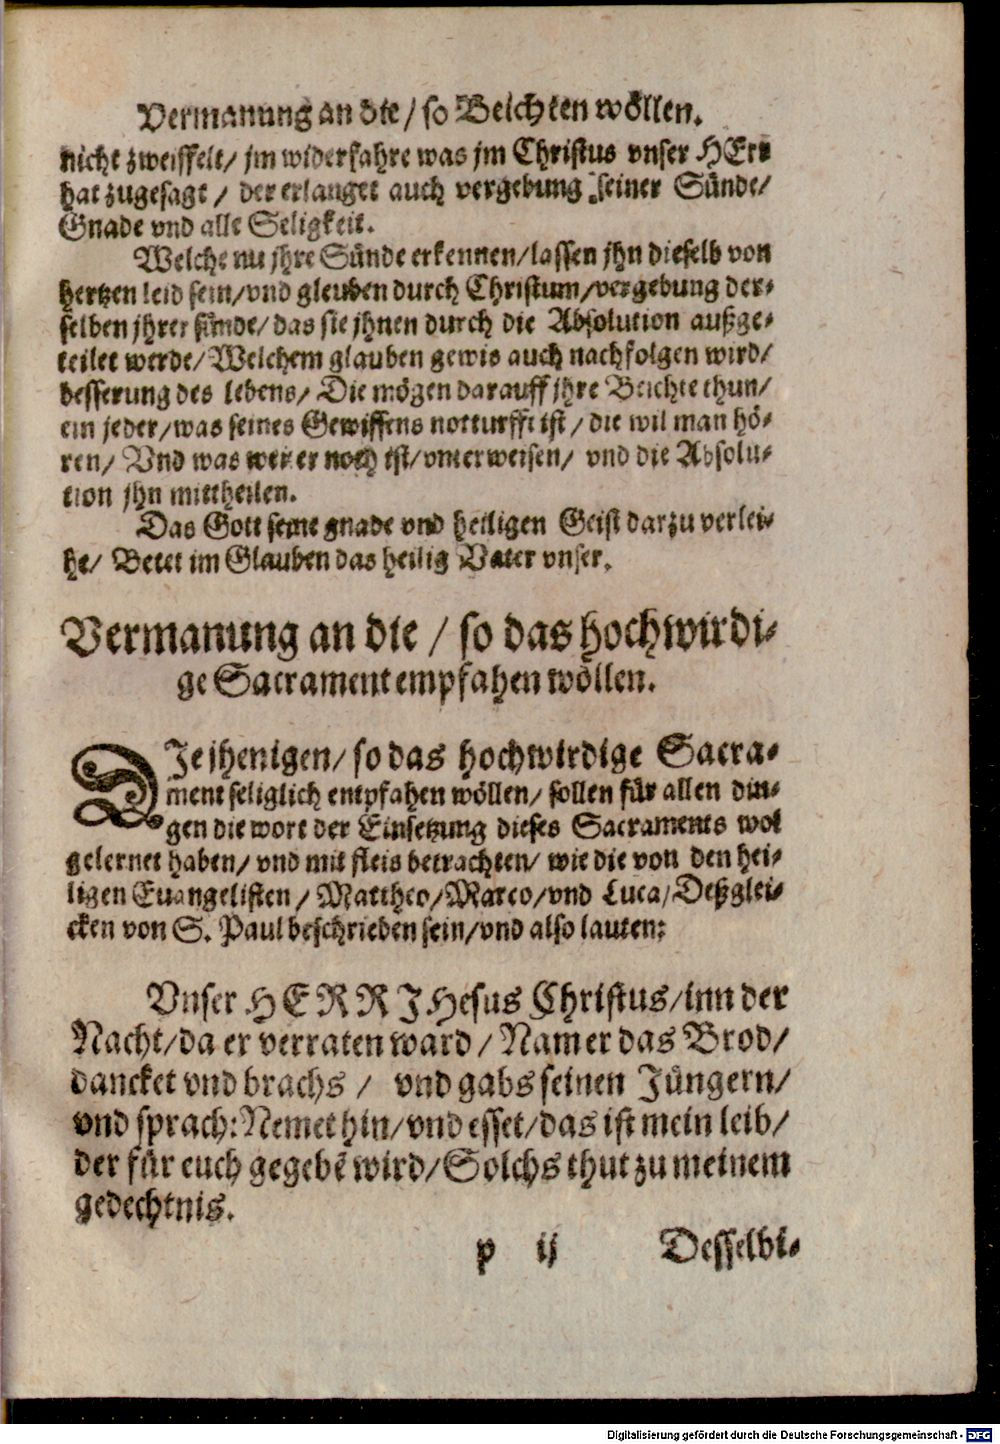 Vermanung an die / so Beichten wöllen.
nicht zweiffelt / jm widerfahre was jm Christus vnser HErr
hat zugesagt / der erlanget auch vergebung seiner Sünde/
Gnade vnd alle Seligkeit.
Welche nu jhre Sünde erkennen/lassen jhn dieselb von
hertzen leid sein/vnd gleuben durch Christum/vergebung der-
selben jhrer sünde/das sie jhnen durch die Absolution außge-
teilet werde/Welchem glauben gewis auch nachfolgen wird/
besserung des lebens/ Die mögen darauff jhre Beichte thun/
ein jeder/was seines Gewissens notturfft ist / die wil man hö-
ren/ Vnd was weiter noch ist/vnterweisen/ vnd die Absolu-
tion jhn mittheilen.
Das Gott seine gnade vnd heiligen Geist darzu verlei-
he/ Betet im Glauben das heilig Vater vnser.
Vermanung an die / so das hochwirdi-
ge Sacrament empfahen wöllen.
DIe jhenigen/ so das hochwirdige Sacra-
ment seliglich entpfahen wöllen/ sollen für allen din-
gen die wort der Einsetzung dieses Sacraments wol
gelernet haben/ vnd mit fleis betrachten/ wie die von den hei-
ligen Euangelisten / Mattheo/Marco/vnd Luca/Deßglei-
cken von S. Paul beschrieben sein/vnd also lauten:
Vnser HERR JHesus Christus/inn der
Nacht/da er verraten ward / Nam er das Brod/
dancket vnd brachs / vnd gabs seinen Jüngern/
vnd sprach: Nemet hin/vnd esset/das ist mein leib/
der für euch gegebē wird/Solchs thut zu meinem
gedechtnis.
p ij Desselbi-
Digitalisierung gefördert durch die Deutsche Forschungsgemeinschaft - DFG